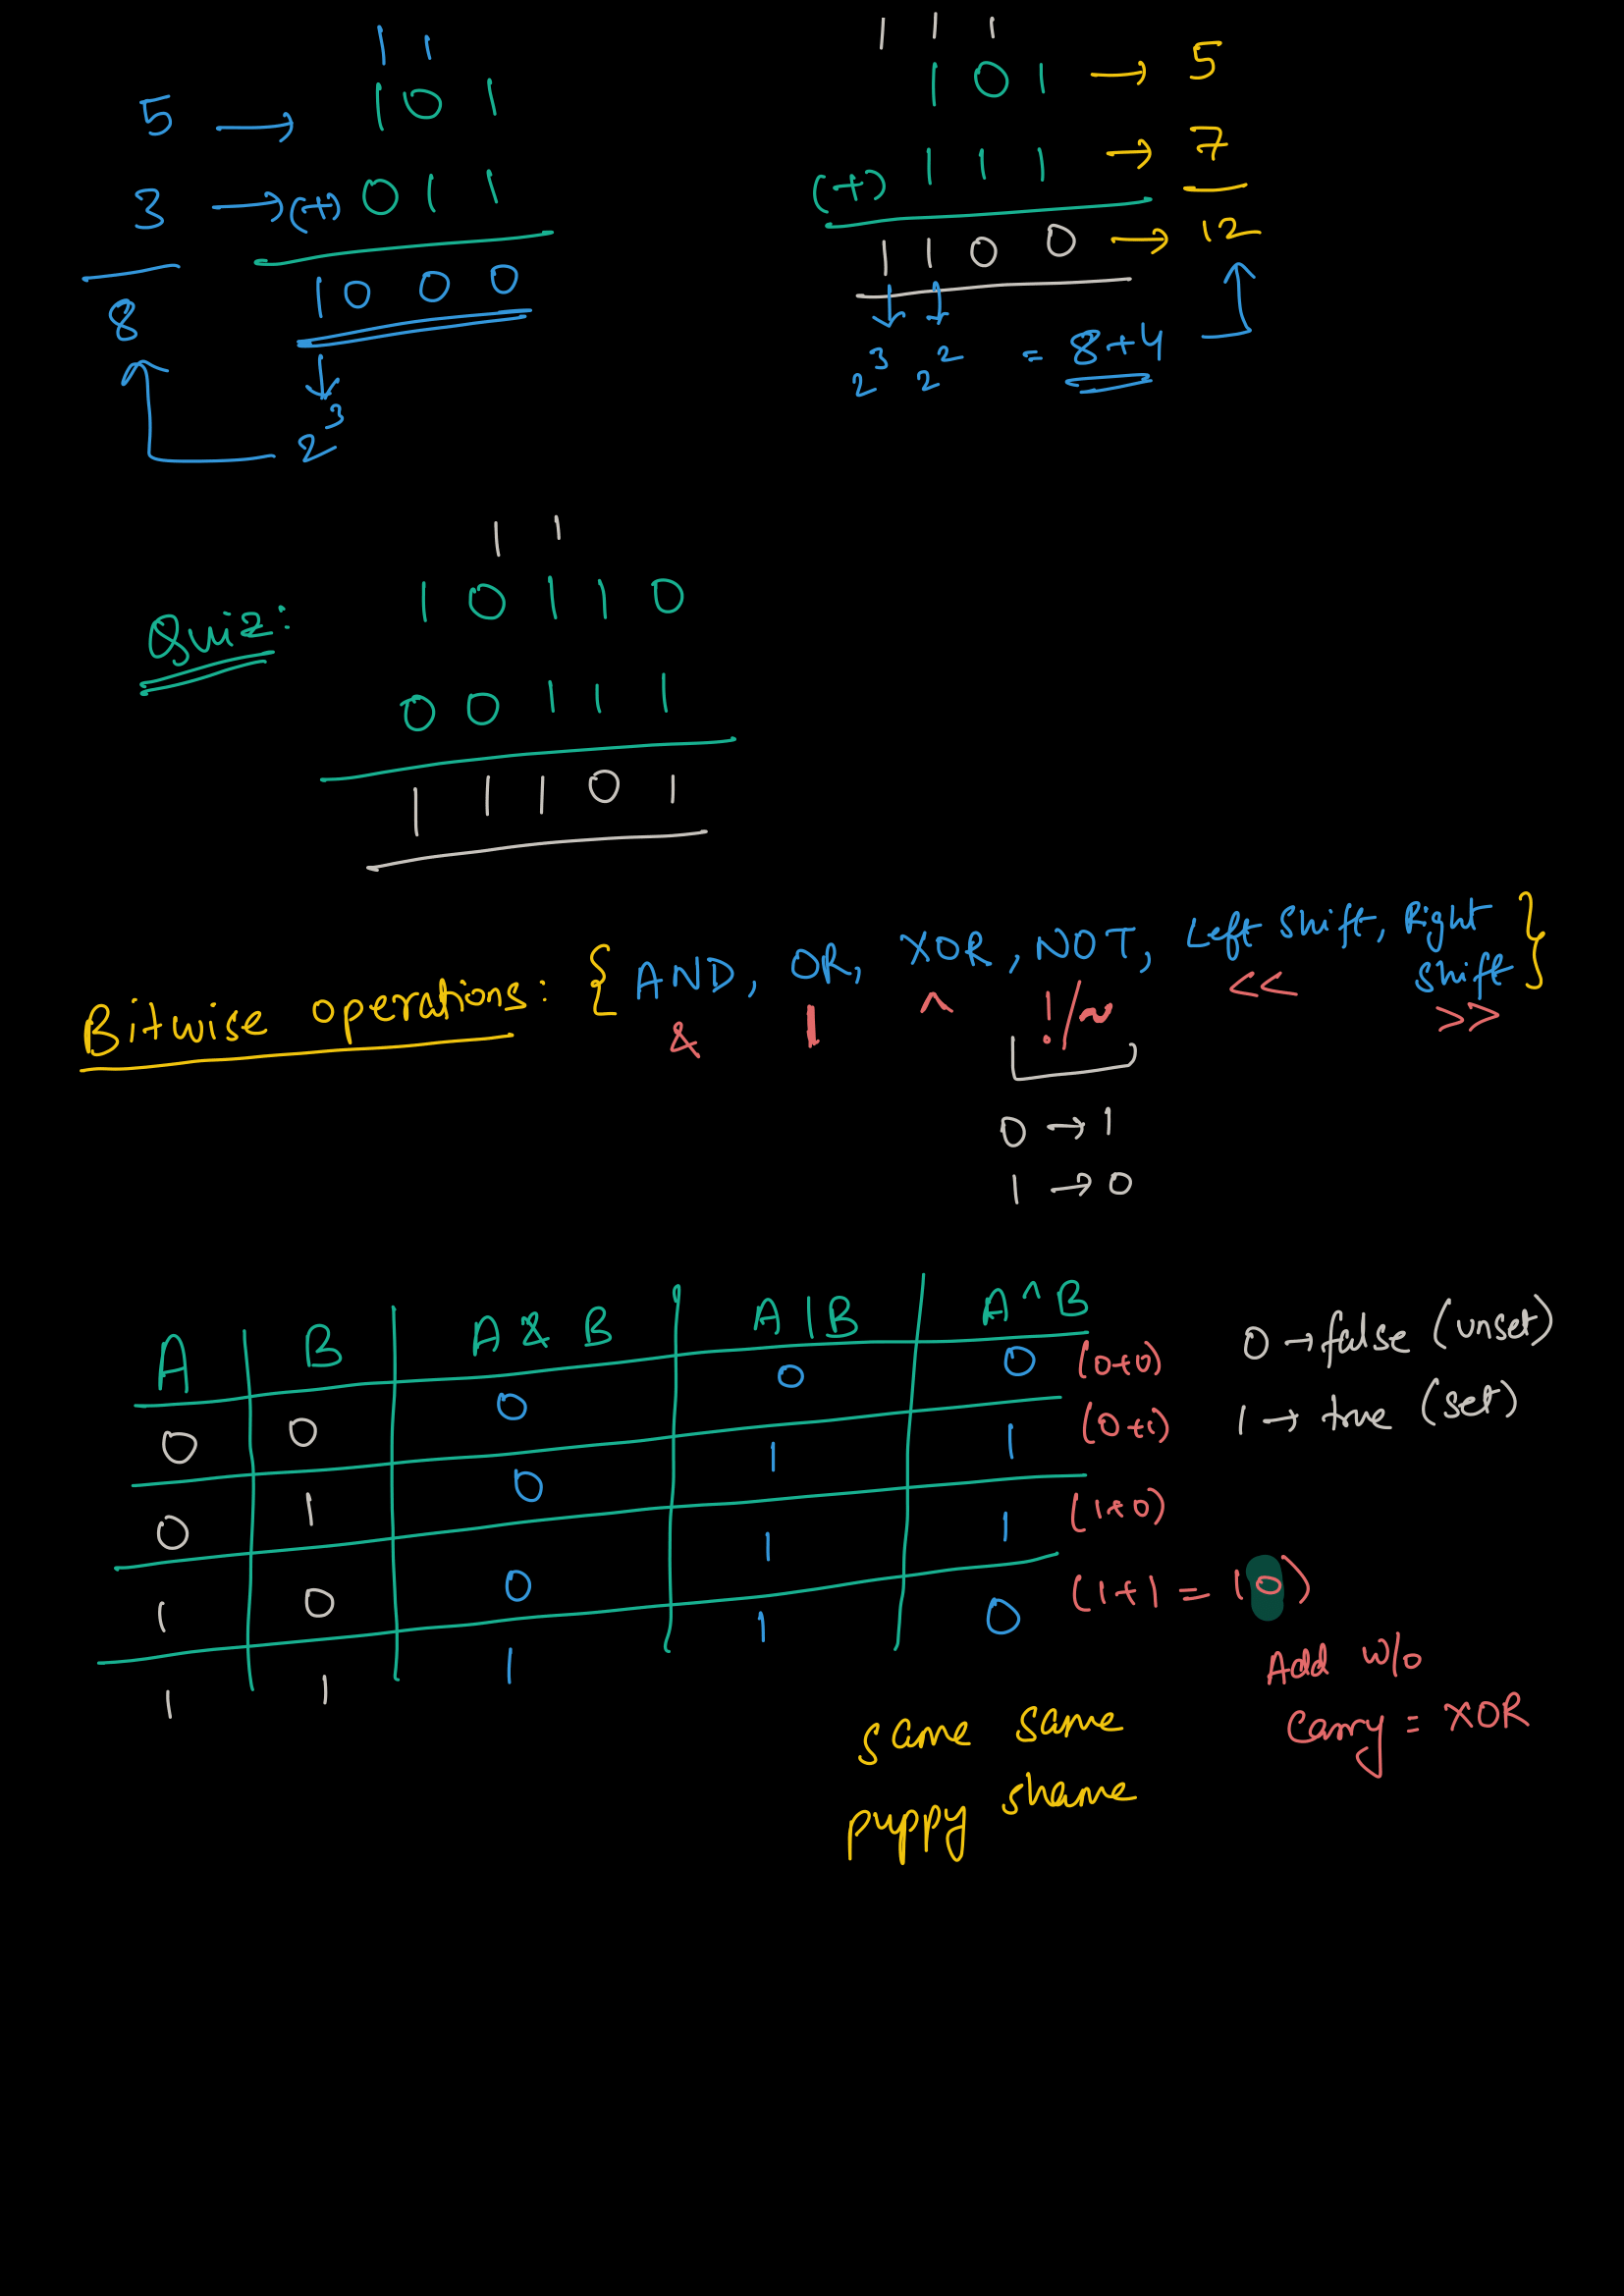 1 1
5 → 1 0 1
3 → (+) 0 1 1
8 1 0 0 0
↓
2³
1 1 1
1 0 1 → 5
(+) 1 1 1 → 7
1 1 0 0 → 12
↓ ↓
2³ 2² = 8+4
1 1
Quiz: 1 0 1 1 0
0 0 1 1 1
1 1 1 0 1
Bitwise operations: { AND, OR, XOR, NOT, Left Shift, Right Shift }
& | ^ !/~ << >>
0 → 1
1 → 0
A B A & B A | B A ^ B
0 0 0 0 0 (0+0)
0 1 0 1 1 (0+1)
1 0 0 1 1 (1+0)
1 1 1 1 0 (1+1 = 10)
0 → false (unset)
1 → true (set)
Add w/o
Carry = XOR
same same
puppy shame